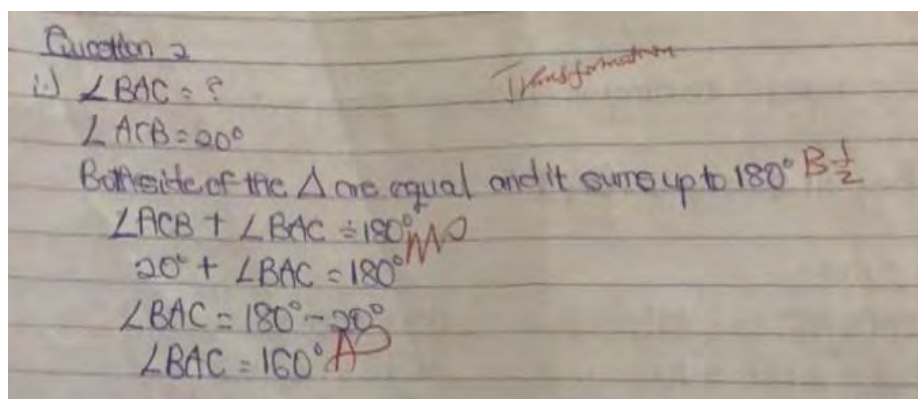 Question 2
Transformation
i.) ∠BAC = ?
∠ACB = 20°
Both side of the Δ are equal and it sums up to 180° B½
∠ACB + ∠BAC = 180° M0
20° + ∠BAC = 180°
∠BAC = 180° - 20°
∠BAC = 160° A0